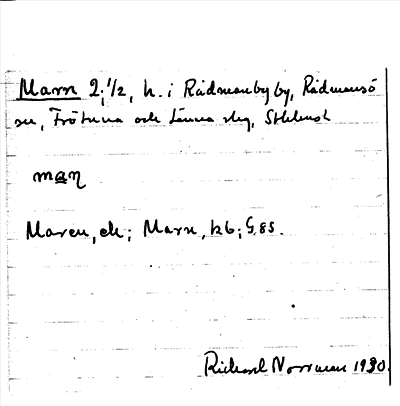 Marn 2; 1/2, h. i Rådmanby by, Rådmansö
sn, Frötuna och Länna skg, Sthlmsl
man̩
Maren, ek; Marn, hb; G.85.
Richard Norrman 1930.